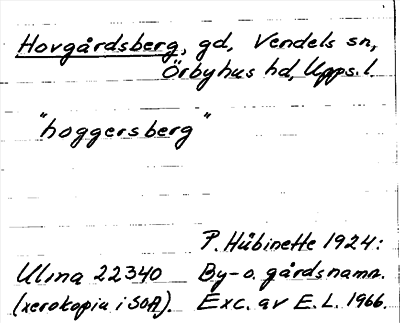 Hovgårdsberg, gd, Vendels sn,
Örbyhus hd, Upps. l.
"hoggersberg"
P. Hübinette 1924:
Ulma 22340 By- o. gårdsnamn.
(xerokopia i SOA). Exc. av E. L. 1966.